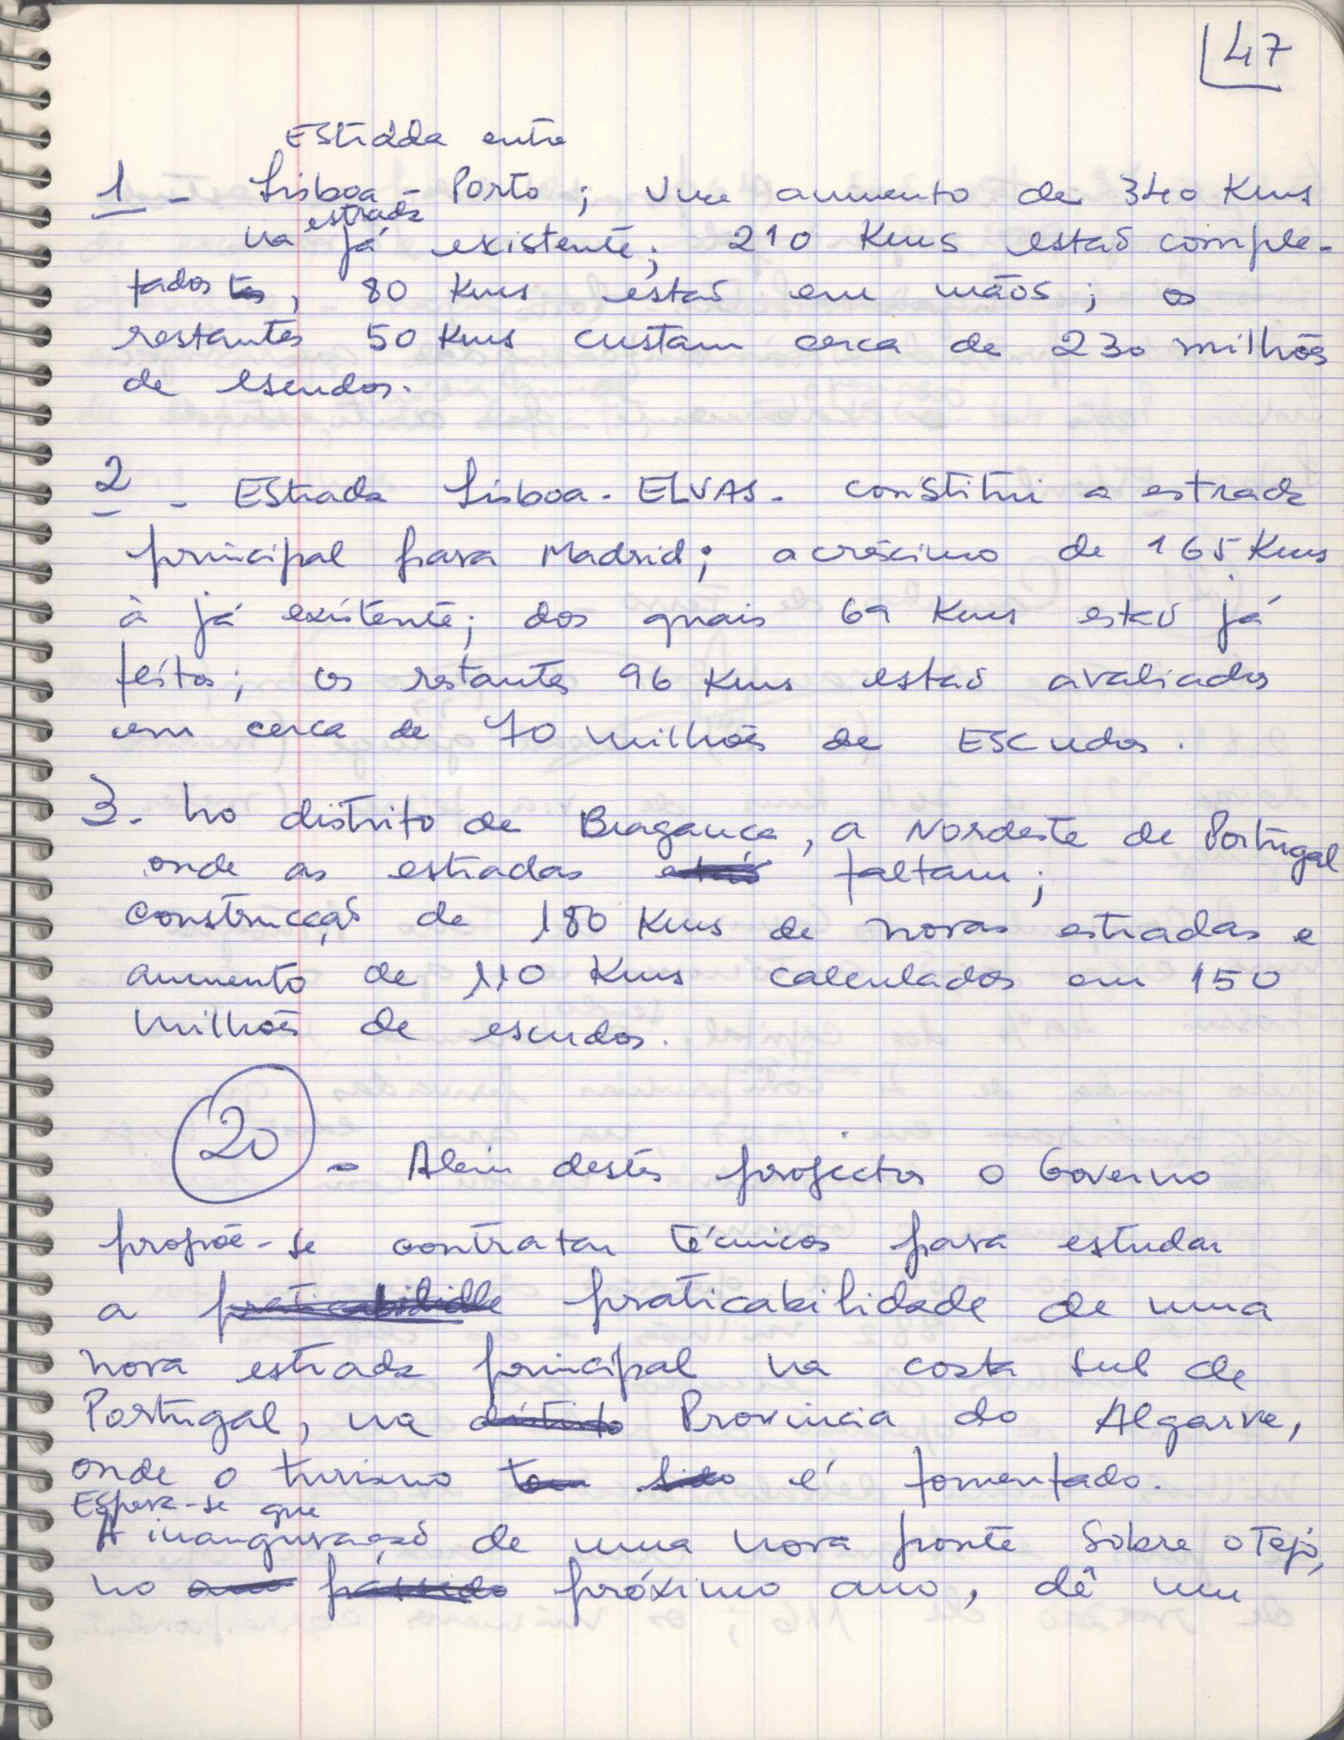 47
Estrada entre
1 - Lisboa - Porto ; um aumento de 340 Kms
na estrada já existente; 210 Kms estão comple-
tados, 80 Kms estão em mãos ; os
restantes 50 Kms custam cerca de 230 milhões
de escudos.
2 - Estrada Lisboa - ELVAS - constitui a estrada
principal para Madrid; acréscimo de 165 Kms
à já existente; dos quais 69 Kms estão já
feitos; os restantes 96 Kms estão avaliados
em cerca de 70 milhões de Escudos.
3 - No distrito de Bragança, a Nordeste de Portugal
onde as estradas faltam;
construcção de 180 Kms de novas estradas e
aumento de 110 Kms calculados em 150
milhões de escudos.
20 - Alem destes projectos o Governo
propõe-se contratar técnicos para estudar
a praticabilidade praticabilidade de uma
nova estrada principal na costa sul de
Portugal, na distrito Provincia do Algarve,
onde o turismo tem sido é fomentado.
Espera-se que
A inauguração de uma nova ponte sobre o Tejo,
no ano passado próximo ano, dê um